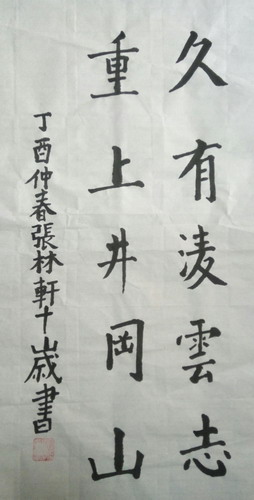 久有凌雲志
重上井岡山
丁酉仲春張林軒十歲書